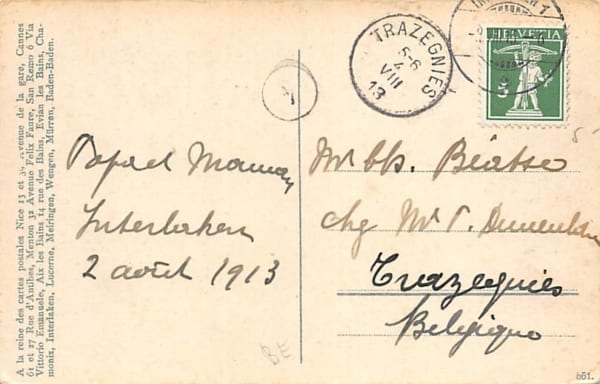 A la reine des cartes postales Nice 13 et 39 Avenue de la gare, Cannes
61 et 27 Rue d'Antibes, Menton 32 Avenue Felix Faure, San Remo 6 Via
Vittorio Emanuele, Aix les Bains 14 rue des Bains, Evian les Bains, Cha-
monix, Interlaken, Lucerne, Meiringen, Wengen, Mürren, Baden-Baden.
Papa et Maman
Interlaken
2 août 1913
BE
TRAZEGNIES
5-6
4
VIII
13
HELVETIA
5
Béatse
Trazegnies
Belgique
861.